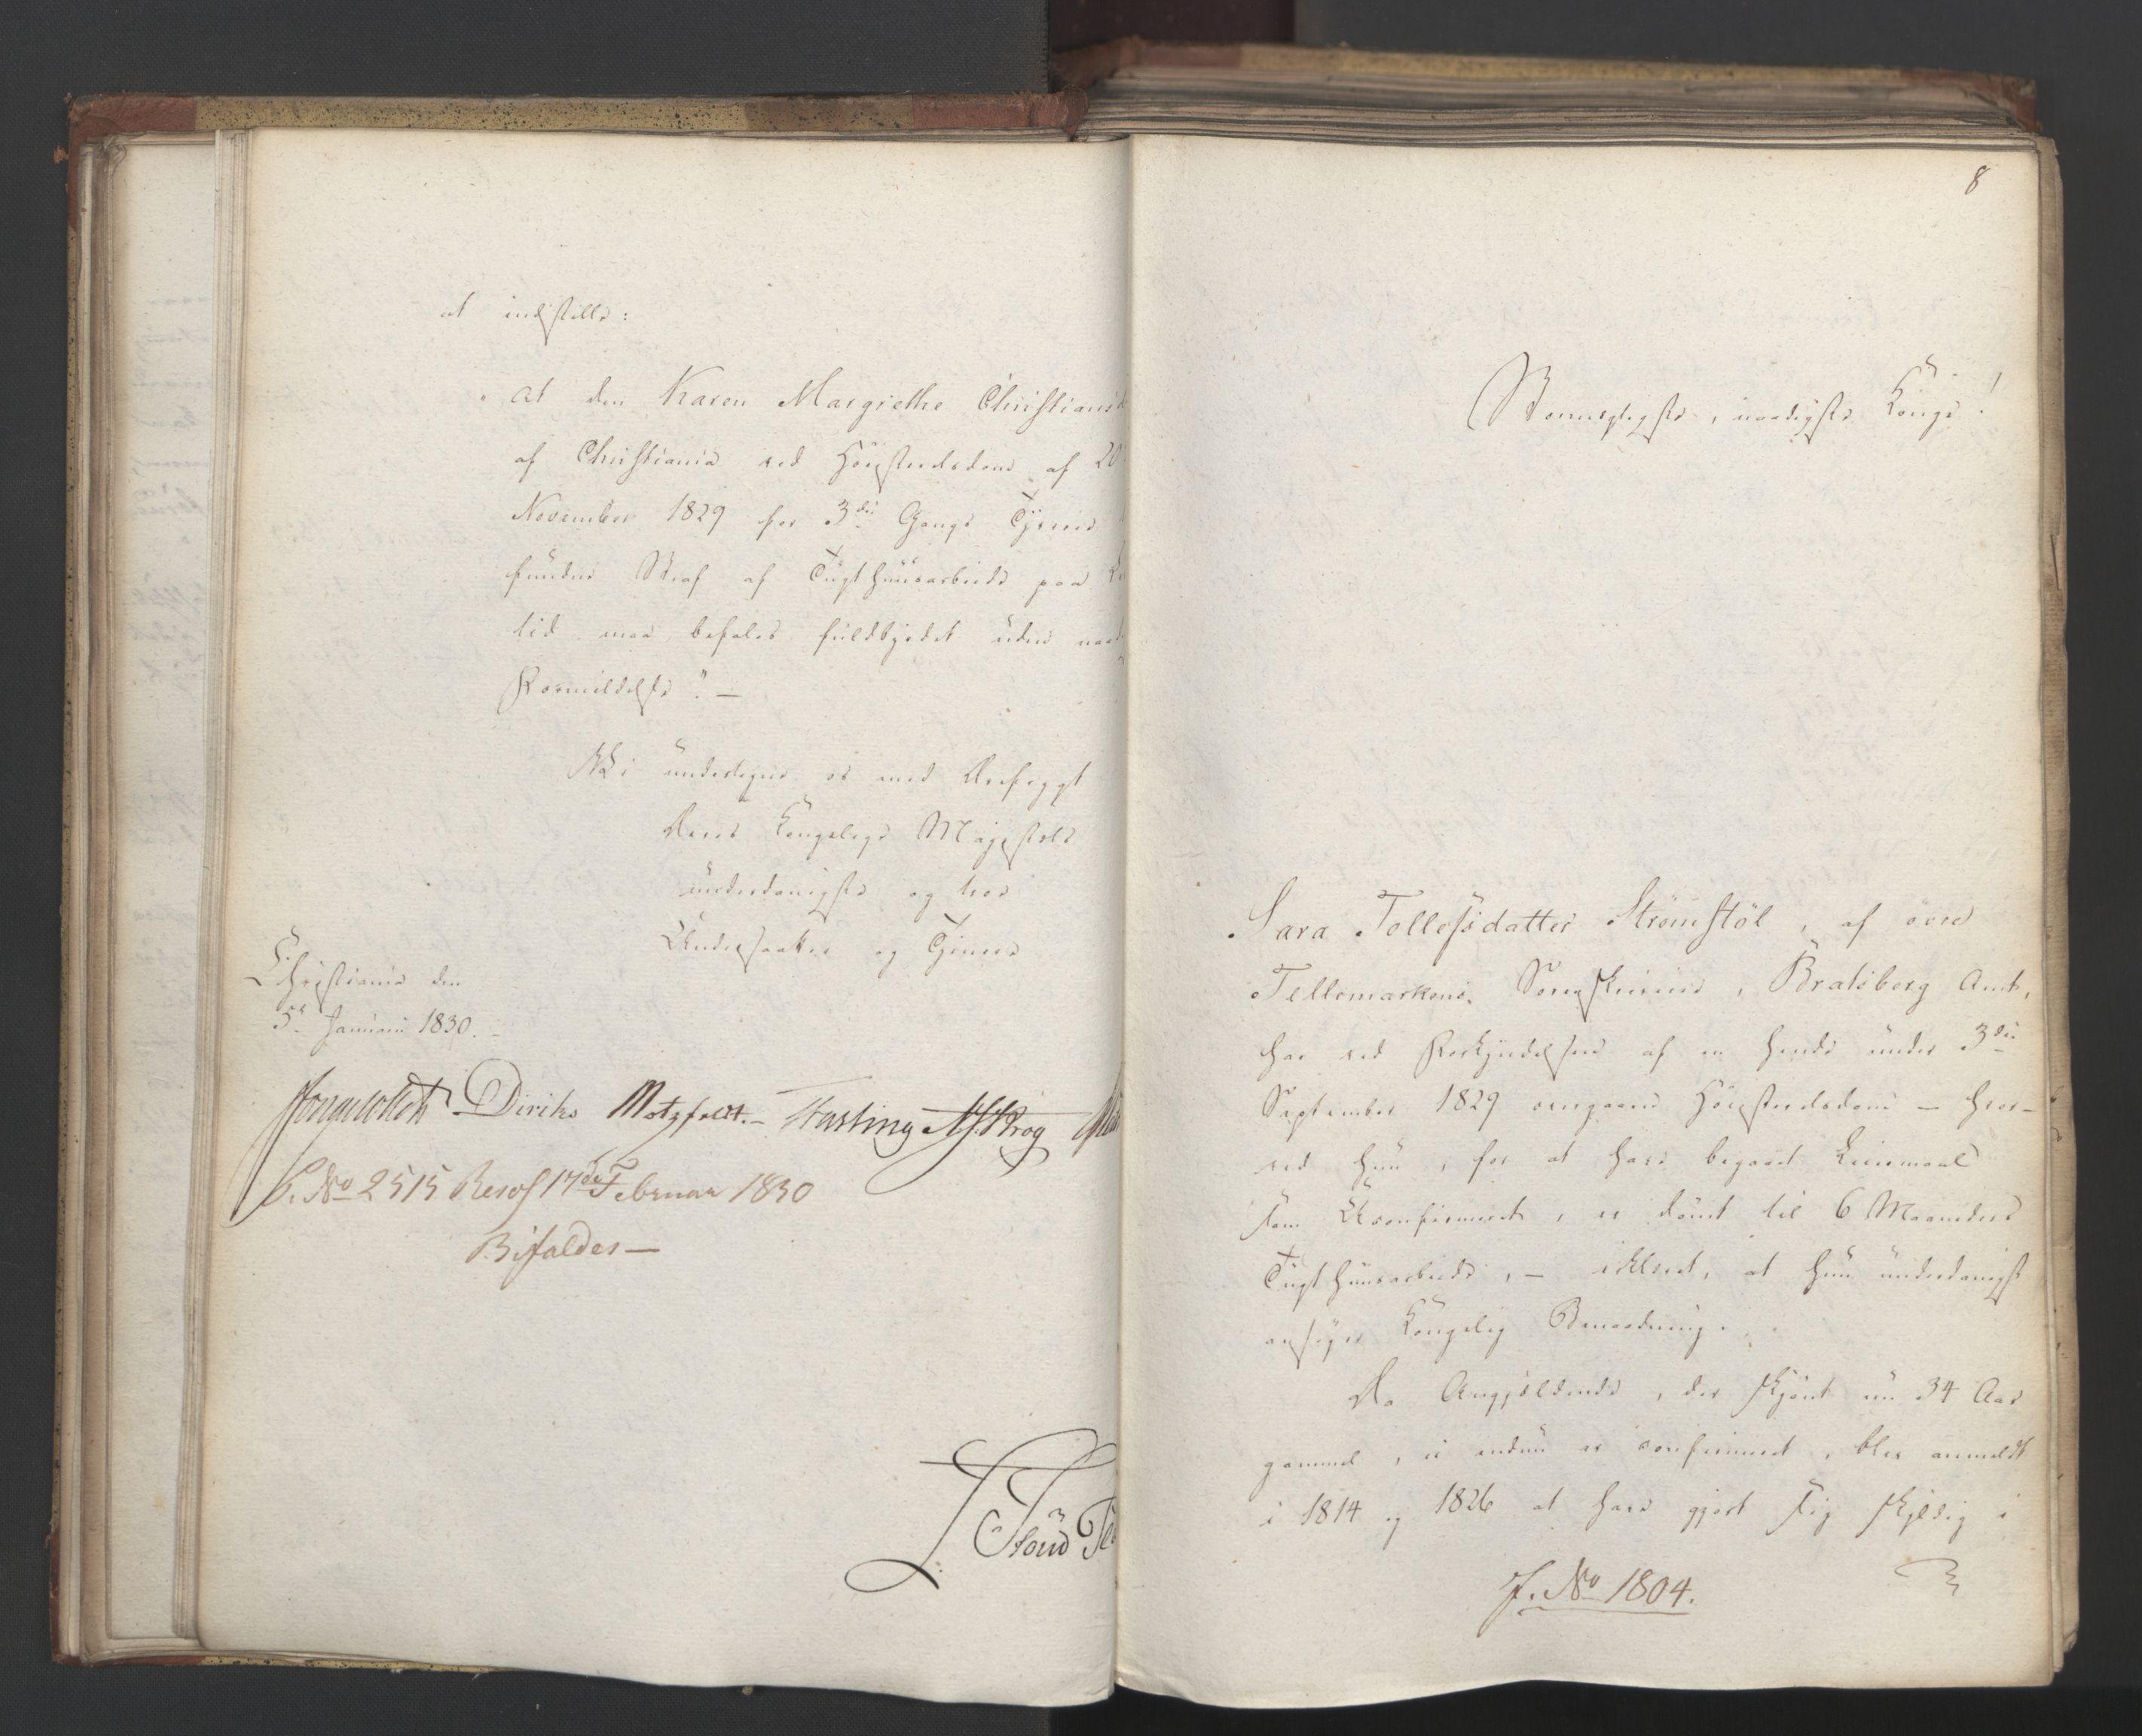 at indstille:
"At den Karen Margrethe Christiansd
af Christiania ved Høiesteretsdom af 20
November 1829 for 3die Gangs Tyverie
fundne Straf af Tugthuusarbeide paa Livs
tid maa befales fuldbyrdet uden naadig
Formildelse". —
Vi undertegne os med Ærefrygt
Deres Kongelige Majestæts
underdanigste og troe
Undersaatter og Tjenere
Christiania den
5te Januari 1830. -
Diriks Motzfeldt. - Fasting
S. No 2515 Resol 17de Februar 1830
Bifaldes —
8
Stormægtigste, naadigste Konge!
Sara Tollefsdatter Strømstöl, af øvre
Tellemarkens Sorenskriverie, Bratsberg Amt,
har ved Forkyndelsen af en hende under 3die
September 1829 overgaaen Høiesteretsdom — hvor-
ved hun, for at have begaaet Leiermaal
som Uconfirmeret, er dømt til 6 Maaneders
Tugthuusarbeide, — erklæret, at hun underdanigst
ansøger Kongelig Benaadning.
Da Angjældende, der skjønt nu 34 Aar
gammel, ei endnu er confirmeret, blev anmeldt
i 1814 og 1826 at have gjort sig skyldig i
J. No 1804.